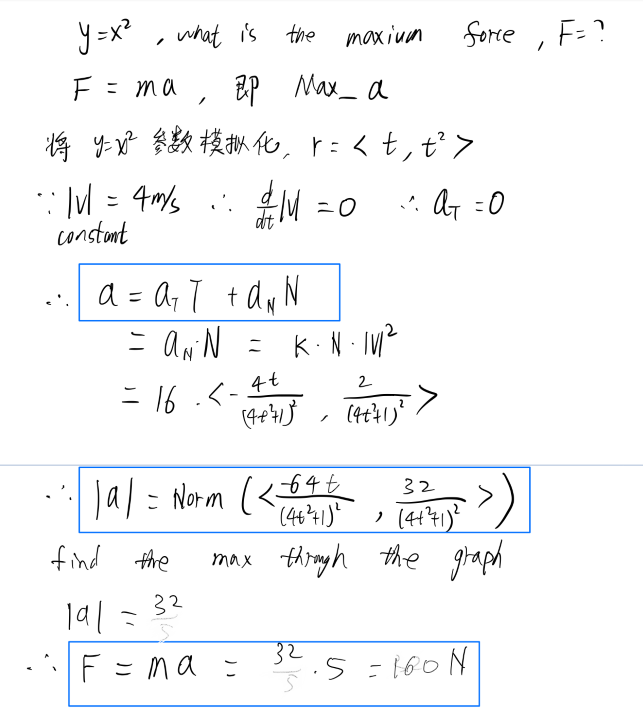 y=x² , what is the maxium force , F=?
F = ma , 即 Max_a
将 y=x² 参数模拟化, r = < t, t² >
∵ |v| = 4m/s ∴ d/dt |v| = 0 ∴ a_T = 0
constant
∴ a = a_T T + a_N N
= a_N · N = K · N · |v|²
= 16 · < - 4t/(4t²+1)² , 2/(4t²+1)² >
∴ |a| = Norm ( < -64t/(4t²+1)² , 32/(4t²+1)² > )
find the max through the graph
|a| = 32
∴ F = ma = 32 · 5 = 160 N